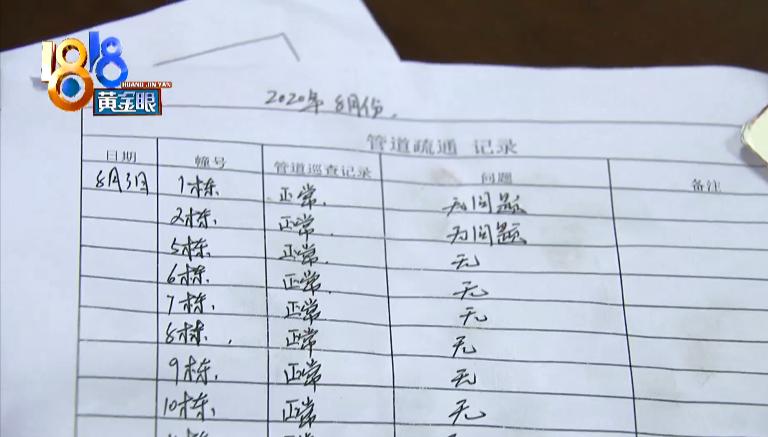 1818
HUANG JIN YAN
黄金眼
2020年 8月份.
管道疏通 记录
日期 幢号 管道巡查记录 问题 备注
8月3日 1栋. 正常. 无问题
2栋. 正常. 无问题
5栋. 正常. 无
6栋. 正常. 无
7栋. 正常. 无
8栋. 正常. 无
9栋. 正常. 无
10栋. 正常. 无